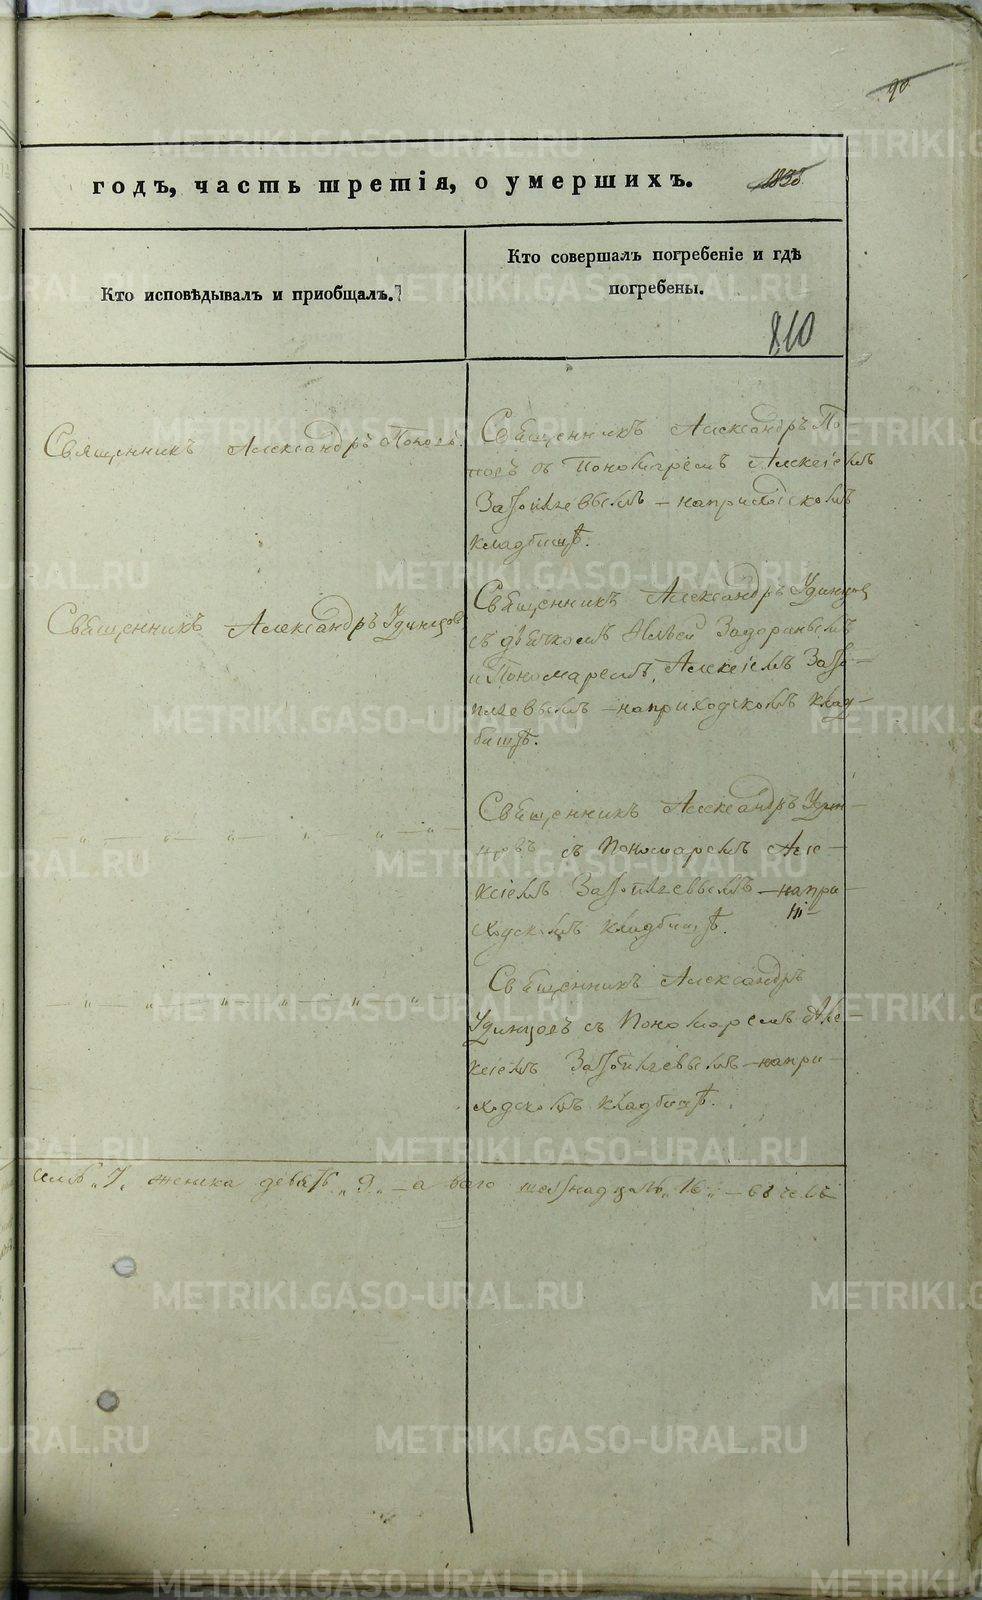 90
годъ, часть третія, о умершихъ.
Кто исповѣдывалъ и приобщалъ.
Кто совершалъ погребеніе и гдѣ
погребены.
810
Священникъ Александръ Поповъ.
Священникъ Александръ По
повъ съ Пономаремъ Алексіемъ
на приходскомъ
кладбищѣ.
Священникъ Александръ Удинцовъ
Священникъ Александръ Удинцовъ
съ дьячкомъ Задоринымъ
и Пономаремъ Алексіемъ
на приходскомъ клад-
бищѣ.
Священникъ Александръ Удин-
цовъ съ Пономаремъ Але-
ксіемъ на при-
ходскомъ кладбищѣ.
Священникъ Александръ
Удинцовъ съ Пономаремъ Але-
ксіемъ на при-
ходскомъ кладбищѣ.
семь „7„ женска девять „9„ – а всего шестнадцать „16„ –
METRIKI.GASO-URAL.RU